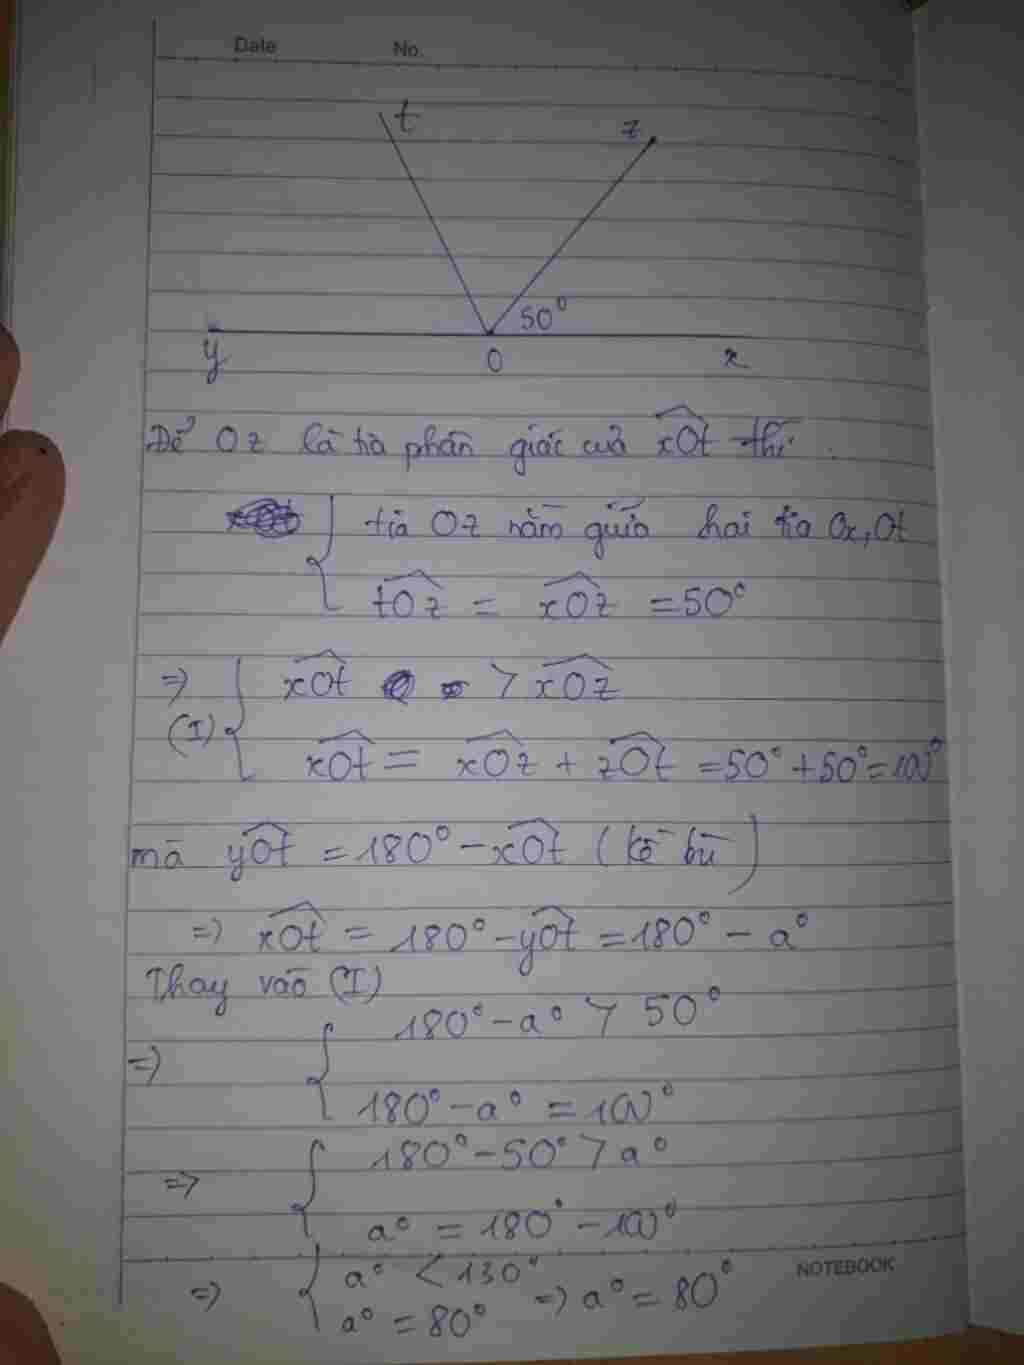 Date No.
t z
50°
y O x
Để Oz là tia phân giác của xOt thì
tia Oz nằm giữa hai tia Ox, Ot
tOz = xOz = 50°
=> xOt > xOz
(I) xOt = xOz + zOt = 50° + 50° = 100°
mà yOt = 180° - xOt (kề bù)
=> xOt = 180° - yOt = 180° - a°
Thay vào (I)
180° - a° > 50°
=>
180° - a° = 100°
180° - 50° > a°
=>
a° = 180° - 100°
NOTEBOOK
a° < 130°
=> => a° = 80°
a° = 80°